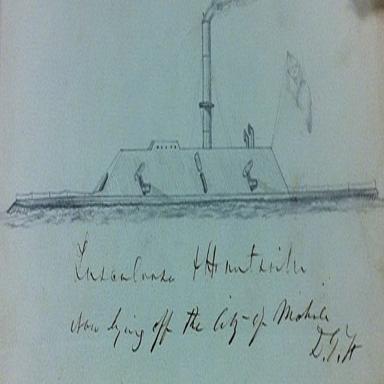 Tuscaloosa & Huntsville
now lying off the City of Mobile
D.G.F.